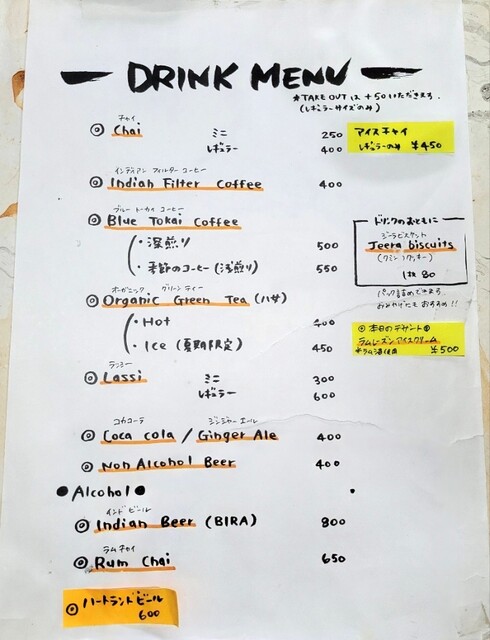 DRINK MENU
*TAKE OUTは +50いただきます.
(レギュラーサイズのみ)
チャイ
◎ Chai ミニ 250
レギュラー 400
アイスチャイ
レギュラーのみ ¥450
インディアン フィルター コーヒー
◎ Indian Filter Coffee 400
ブルー トーカイ コーヒー
◎ Blue Tokai Coffee
・深煎り 500
・季節のコーヒー(浅煎り) 550
ドリンクのおともに
ジーラビスケット
Jeera biscuits
(クミンクッキー)
1枚 80
パック詰めできます.
おみやげにもおすすめ!!
オーガニック グリーン ティー
◎ Organic Green Tea (ハサ)
・Hot 400
・Ice (夏期限定) 450
◎ 本日のデザート
ラムレーズンアイスクリーム
*ラム酒使用 ¥500
ラッシー
◎ Lassi ミニ 300
レギュラー 600
コカコーラ ジンジャーエール
◎ Coca cola / Ginger Ale 400
◎ Non Alcohol Beer 400
● Alcohol ●
インド ビール
◎ Indian Beer (BIRA) 800
ラムチャイ
◎ Rum Chai 650
◎ ハートランドビール
600